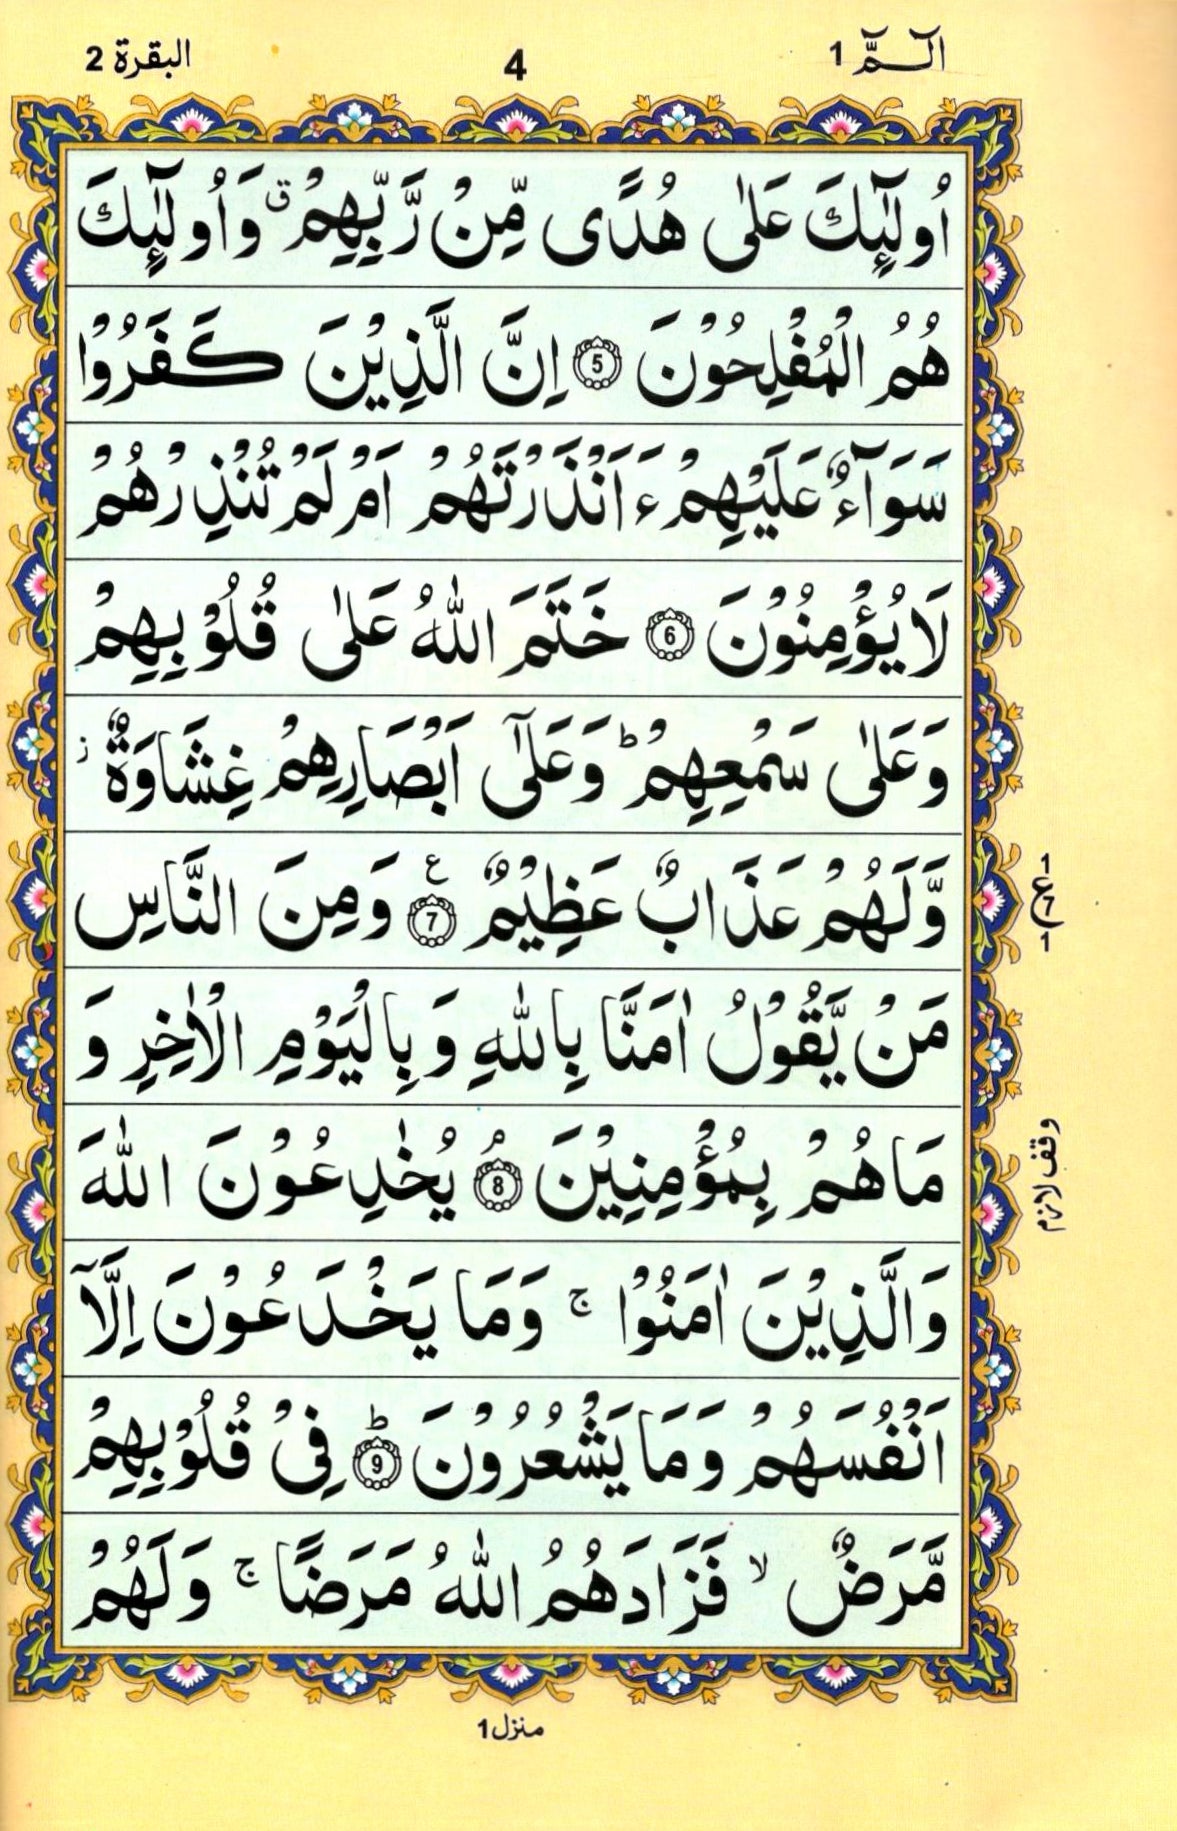 الٓـمّٓ 1
4
البقرة 2
اُولٰٓئِكَ عَلٰى هُدًى مِّنْ رَّبِّهِمْ ۗ وَاُولٰٓئِكَ
هُمُ الْمُفْلِحُوْنَ ۝5 اِنَّ الَّذِيْنَ كَفَرُوْا
سَوَآءٌ عَلَيْهِمْ ءَاَنْذَرْتَهُمْ اَمْ لَمْ تُنْذِرْهُمْ
لَا يُؤْمِنُوْنَ ۝6 خَتَمَ اللّٰهُ عَلٰى قُلُوْبِهِمْ
وَعَلٰى سَمْعِهِمْ ؕ وَعَلٰٓى اَبْصَارِهِمْ غِشَاوَةٌ ز
وَّلَهُمْ عَذَابٌ عَظِيْمٌ ۝7 ع وَمِنَ النَّاسِ
ع 7
مَنْ يَّقُوْلُ اٰمَنَّا بِاللّٰهِ وَبِالْيَوْمِ الْاٰخِرِ وَ
مَا هُمْ بِمُؤْمِنِيْنَ ۝8 ۘ يُخٰدِعُوْنَ اللّٰهَ
وقف لازم
وَالَّذِيْنَ اٰمَنُوْا ۚ وَمَا يَخْدَعُوْنَ اِلَّآ
اَنْفُسَهُمْ وَمَا يَشْعُرُوْنَ ۝9 ؕ فِىْ قُلُوْبِهِمْ
مَّرَضٌ ۙ فَزَادَهُمُ اللّٰهُ مَرَضًا ۚ وَلَهُمْ
منزل 1